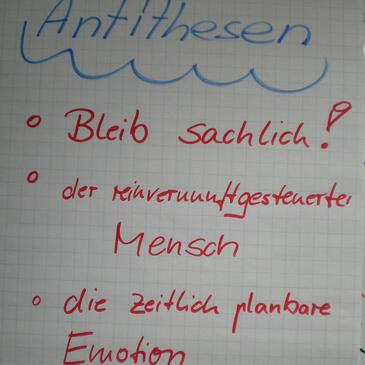 Antithesen
Bleib sachlich!
der reinvernunftgesteuerte
Mensch
die zeitlich planbare
Emotion